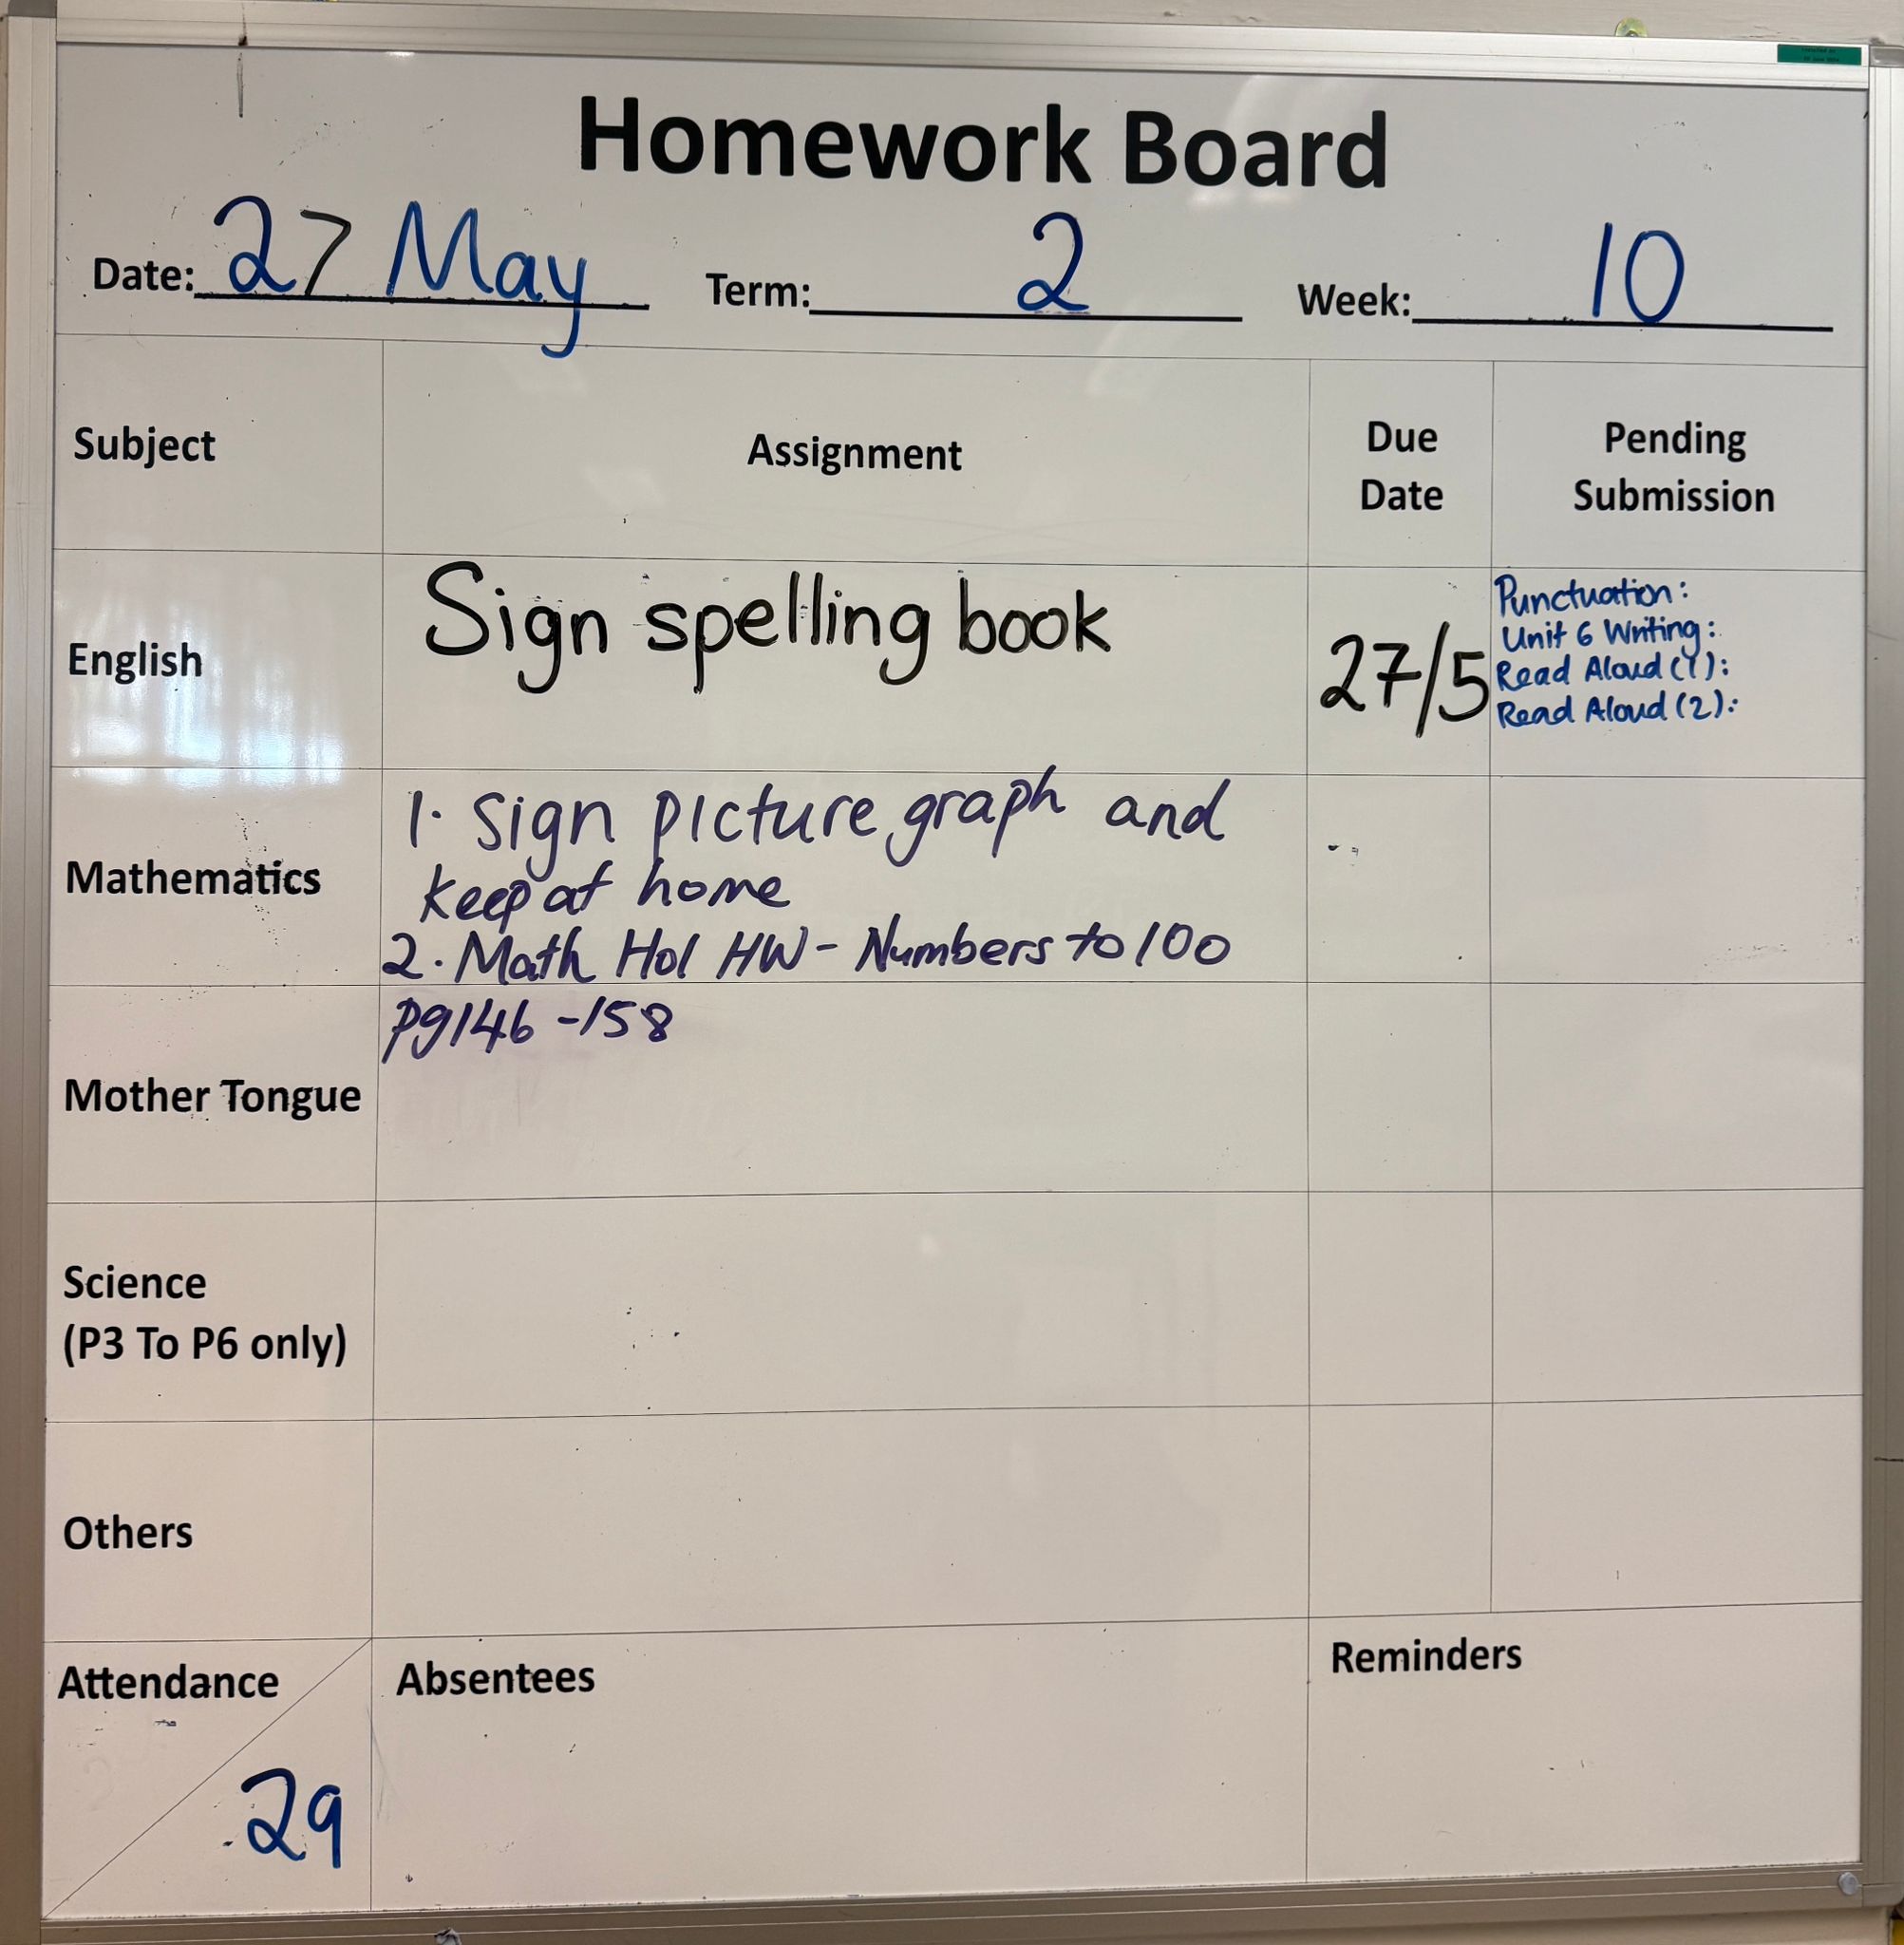 Homework Board
Date: 27 May Term: 2 Week: 10
Subject
Assignment
Due
Date
Pending
Submission
English
Sign spelling book
27/5
Punctuation:
Unit 6 Writing:
Read Aloud (1):
Read Aloud (2):
Mathematics
1. Sign picture graph and
keep at home
2. Math Hol HW - Numbers to 100
pg146 - 158
Mother Tongue
Science
(P3 To P6 only)
Others
Attendance
29
Absentees
Reminders